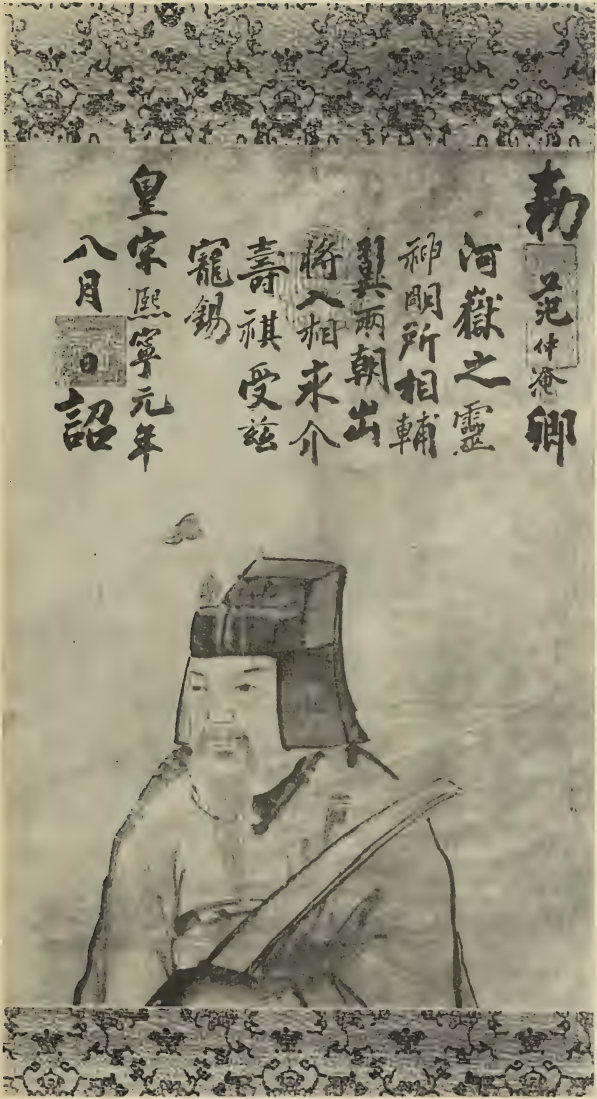 勅范仲淹卿
河嶽之靈
神明所相輔
翼兩朝出
將入相永介
壽祺受茲
寵錫
皇宋熙寧元年
八月日詔